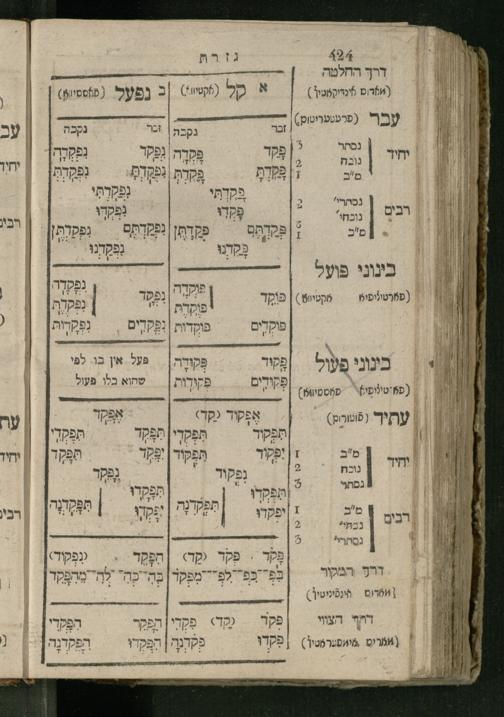 424 גזרת
דרך החלטה
(מאדוס אינדיקאטיוו)
א קל (אקטיוו)
ב נפעל (פאססיווא)
עבר (פרעטעריטום)
זכר נקבה
זכר נקבה
יחיד
נסתר 3
נוכח 2
מ״ב 1
פָּקַד פָּקְדָה
פָּקַדְתָּ פָּקַדְתְּ
פָּקַדְתִּי
נִפְקַד נִפְקְדָה
נִפְקַדְתָּ נִפְקַדְתְּ
נִפְקַדְתִּי
רבים
נסתרי'
נוכחי'
מ״ב 1
פָּקְדוּ
פְּקַדְתֶּם פְּקַדְתֶּן
פָּקַדְנוּ
נִפְקְדוּ
נִפְקַדְתֶּם נִפְקַדְתֶּן
נִפְקַדְנוּ
בינוני פועל
(פארטיליפיא אקטיווא)
פּוֹקֵד פּוֹקְדָה
פּוֹקֶדֶת
פּוֹקְדִים פּוֹקְדוֹת
נִפְקָד נִפְקָדָה
נִפְקֶדֶת
נִפְקָדִים נִפְקָדוֹת
בינוני פעול
פאססיווא)
פָּקוּד פְּקוּדָה
פְּקוּדִים פְּקוּדוֹת
פעל אין בו לפי
שהוא כלו פעול
עתיד (פוטורום)
יחיד
מ״ב 1
נוכח 2
נסתר 3
אֶפְקוֹד (קַד)
תִּפְקוֹד תִּפְקְדִי
יִפְקוֹד תִּפְקוֹד
נִפְקוֹד
אֶפָּקֵד
תִּפָּקֵד תִּפָּקְדִי
יִפָּקֵד תִּפָּקֵד
נִפָּקֵד
רבים
מ״ב 1
נוכחי' 2
נסתרי' 3
תִּפְקְדוּ
יִפְקְדוּ תִּפְקֹדְנָה
תִּפָּקְדוּ
יִפָּקְדוּ תִּפָּקַדְנָה
דרך המקור
(מאדוס אינפיניטיוו)
פָּקֹד פְּקֹד (קַד)
הִפָּקֵד (נִפְקוֹד)
דרך הצווי
(מאדוס אימפעראטיוו)
פְּקֹד (קַד) פִּקְדִי
פִּקְדוּ פְּקֹדְנָה
הִפָּקֵד הִפָּקְדִי
הִפָּקְדוּ הִפָּקַדְנָה